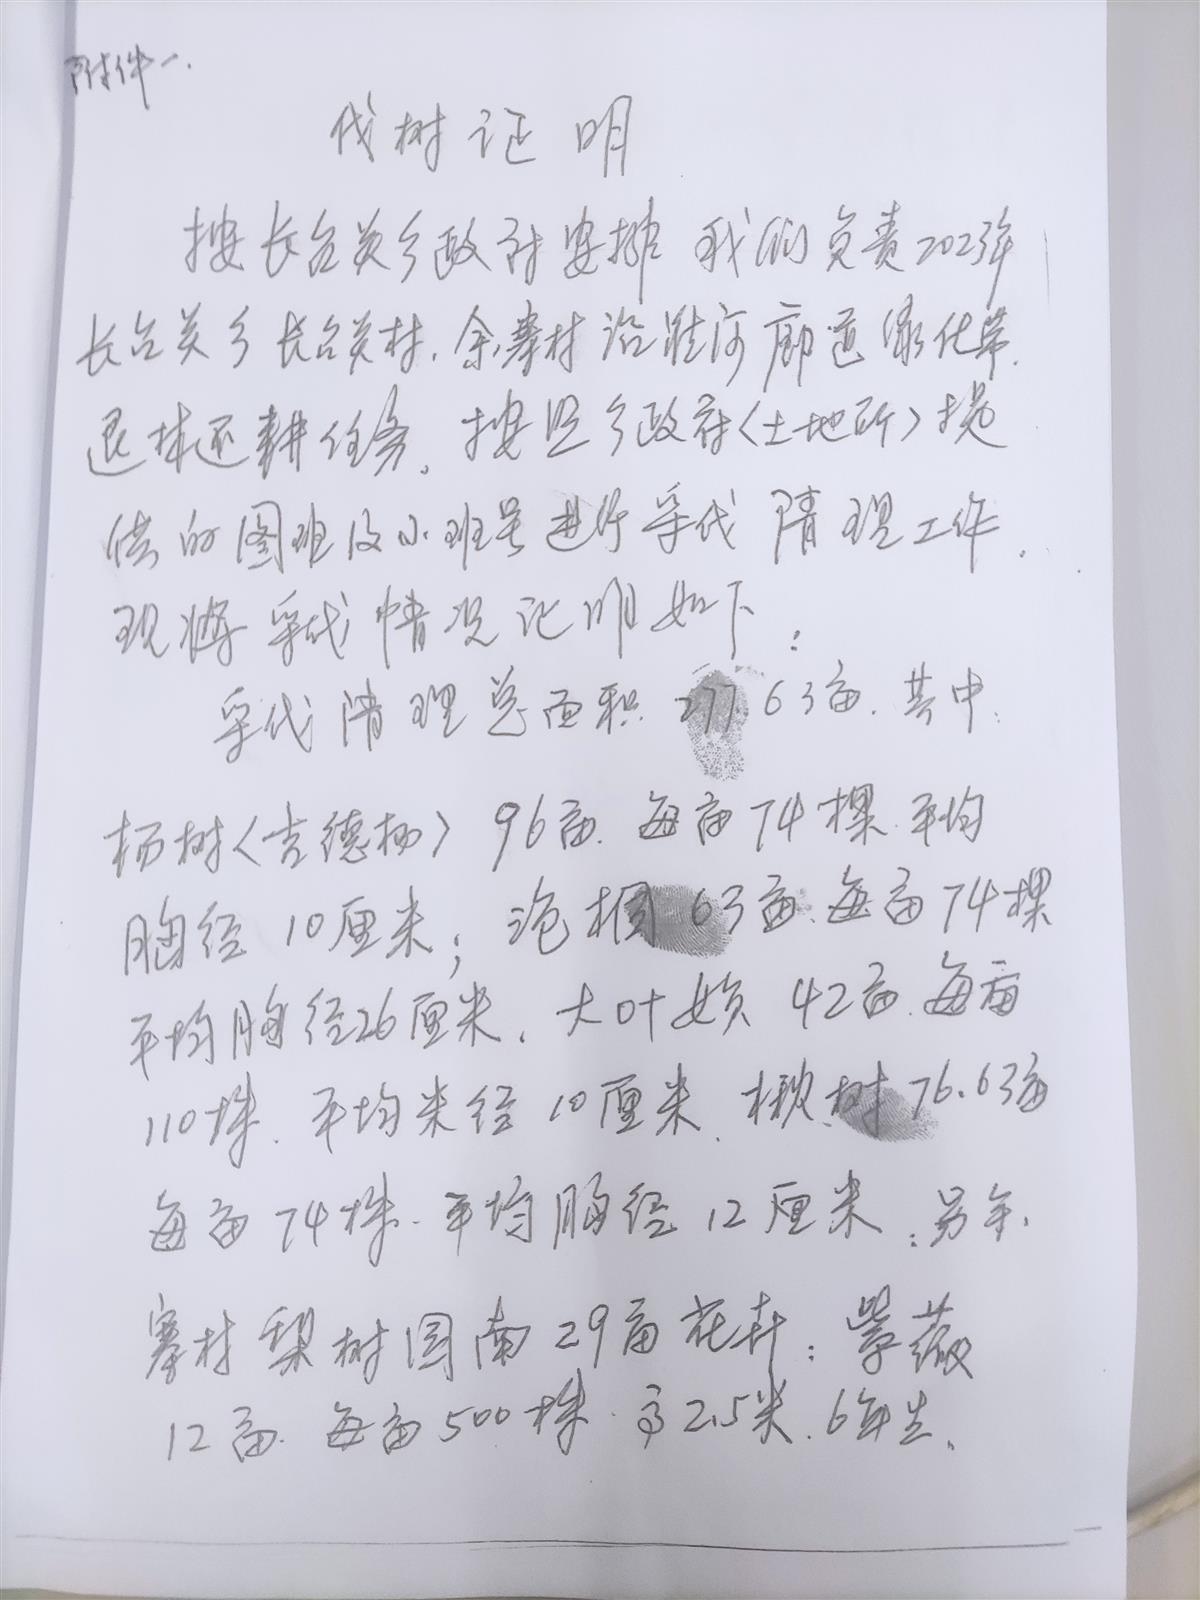 附件一.
伐树证明
按长台关乡政府安排 我们负责2023年
长台关乡长台关村、余寨村沿淮河廊道绿化带.
退林还耕任务。按照乡政府〈土地所〉提
供的图班及小班号进行采伐清理工作.
现将采伐情况证明如下:
采伐清理总面积277.63亩.其中.
杨树〈吉德杨〉96亩.每亩74棵.平均
胸径10厘米;泡桐63亩.每亩74棵
平均胸径26厘米.大叶女贞42亩.每亩
110株.平均米径10厘米.楸树76.63亩
每亩74株.平均胸径12厘米;另余.
寨村梨树园南29亩花卉:紫薇
12亩.每亩500株.高2.5米.6年生.